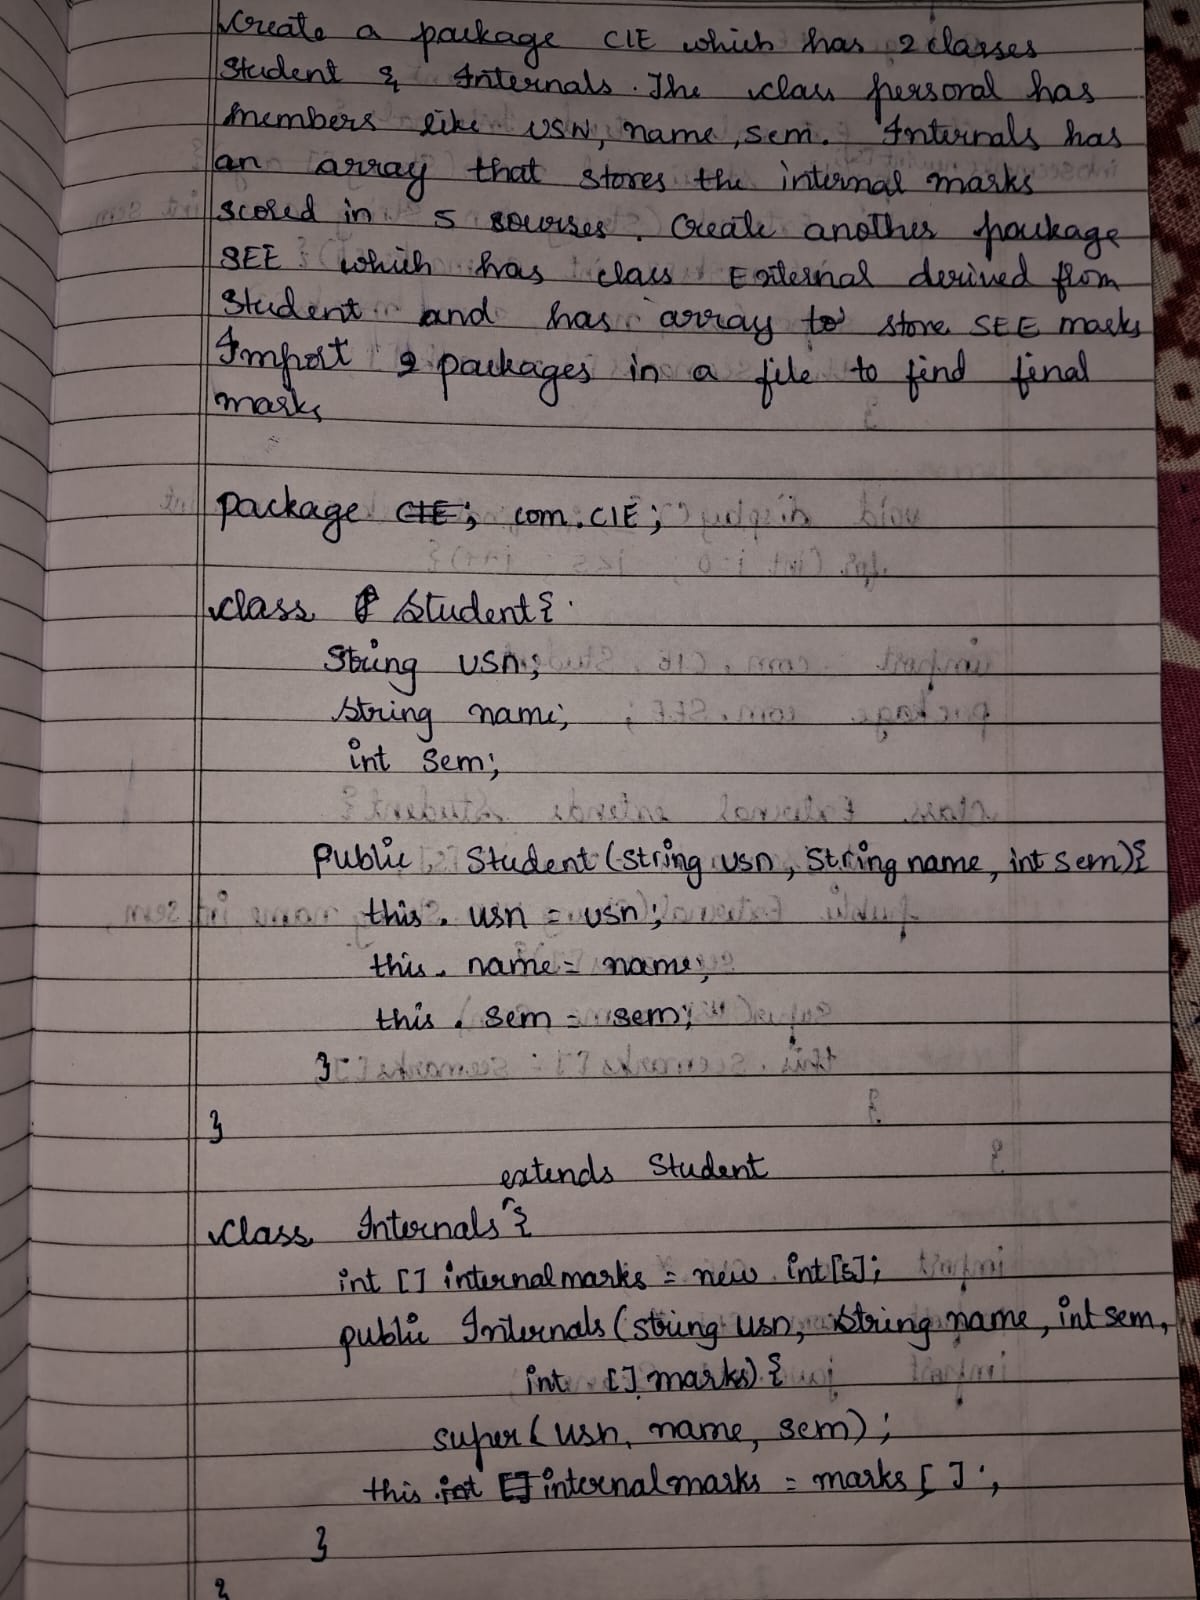 Create a package CIE which has 2 classes
Student & Internals. The class personal has
members like USN, name, sem. Internals has
an array that stores the internal marks
scored in 5 courses. Create another package
SEE which has class External derived from
Student and has array to store SEE marks
Import 2 packages in a file to find final
marks
package CIE; com.CIE;
class P Student {
String usn;
String name;
int sem;
public Student (String usn, String name, int sem) {
this. usn = usn;
this. name = name;
this . sem = sem;
}
}
extends Student
class Internals {
int [] internalmarks = new int[5];
public Internals (String usn, String name, int sem,
int [] marks) {
super (usn, name, sem) ;
this .int [] internalmarks = marks [ ] ;
}
}